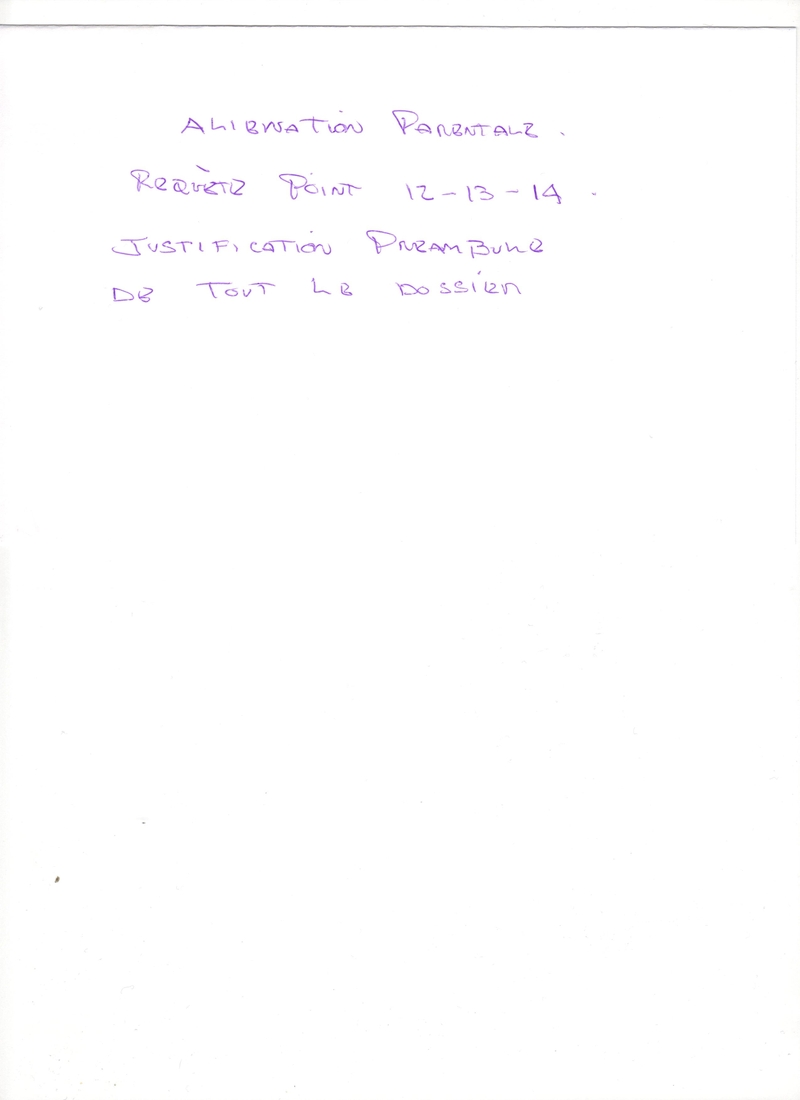 ALIENATION PARENTALE.
REQUÈTE POINT 12-13-14.
JUSTIFICATION PREAMBULE
DE TOUT LE DOSSIER